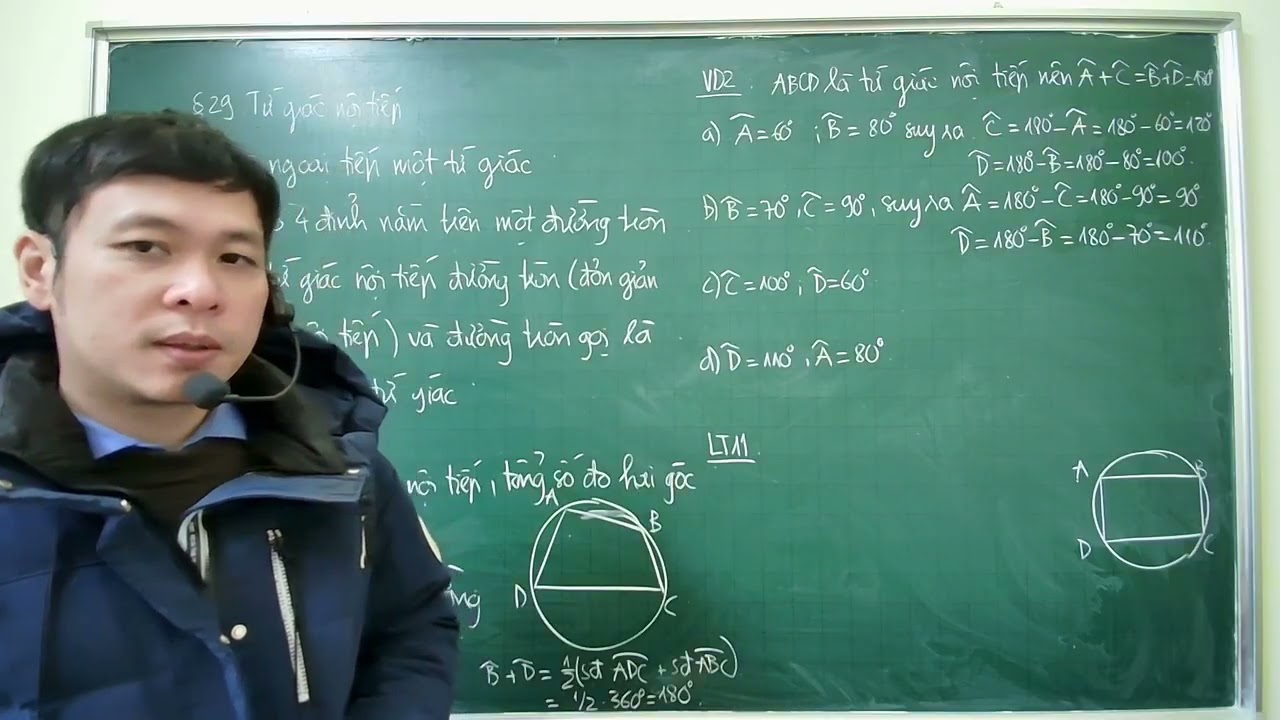 §29 Tứ giác nội tiếp
ngoại tiếp một tứ giác
4 đỉnh nằm trên một đường tròn
giác nội tiếp đường tròn (đơn giản
tiếp) và đường tròn gọi là
tứ giác
nội tiếp, tổng số đo hai góc
A
B
D
C
B̂+D̂ = 1/2(sđ ADC + sđ ABC)
= 1/2 · 360° = 180°.
VD2. ABCD là tứ giác nội tiếp nên Â+Ĉ=B̂+D̂=180°
a) Â=60°; B̂=80° suy ra Ĉ=180°-Â=180°-60°=120°
D̂=180°-B̂=180°-80°=100°.
b) B̂=70°, Ĉ=90°, suy ra Â=180°-Ĉ=180°-90°=90°
D̂=180°-B̂=180°-70°=110°.
c) Ĉ=100°; D̂=60°
d) D̂=110°, Â=80°
LT11
A
B
D
C